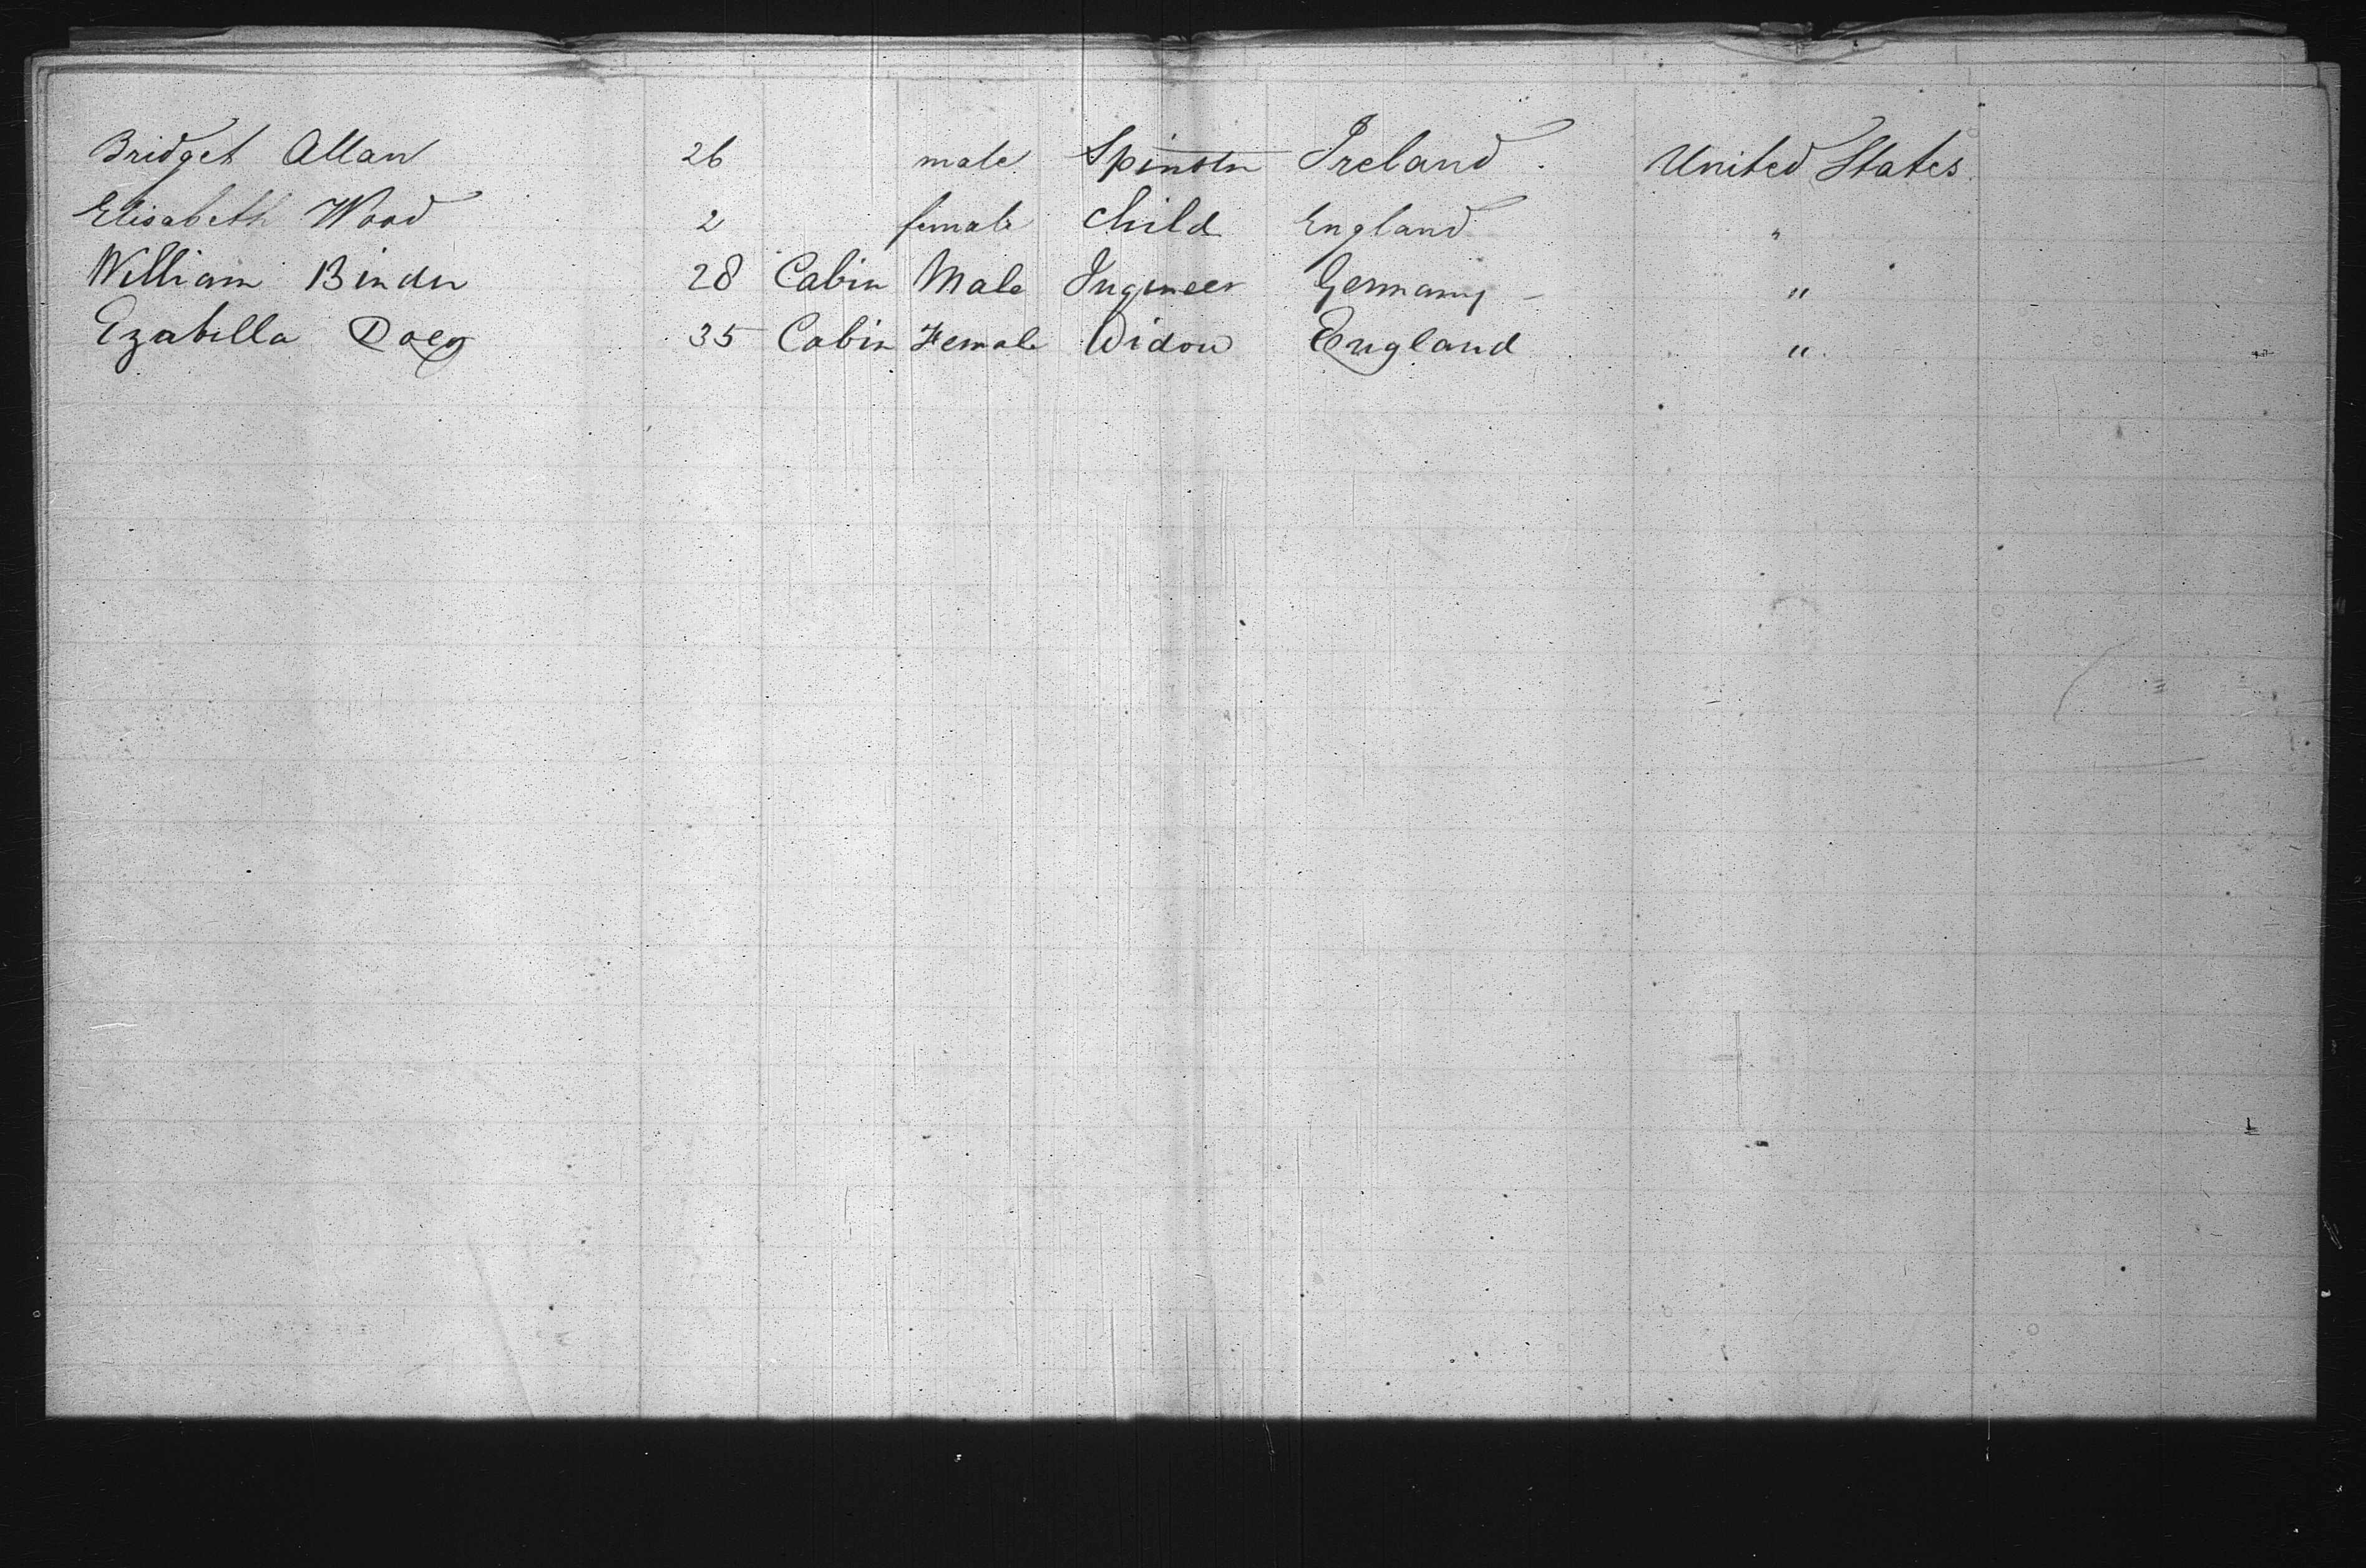 Bridget Allan 26 male Spinstr Ireland United States
Elisabeth Wood 2 female child England "
William Binder 28 Cabin Male Ingineer Germany - "
Ezabella Doeg 35 Cabin Female Widow England "